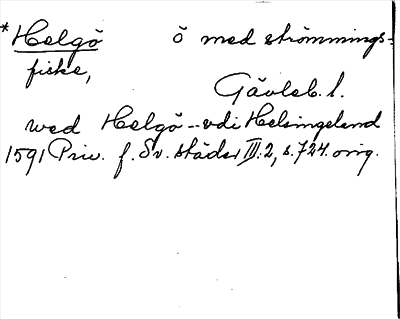 *Helgö ö med strömmings-
fiske,
Gävleb. l.
wed Helgö -- vdi Helsingeland
1591 Priv. f. Sv. städer III:2, s. 724. orig.